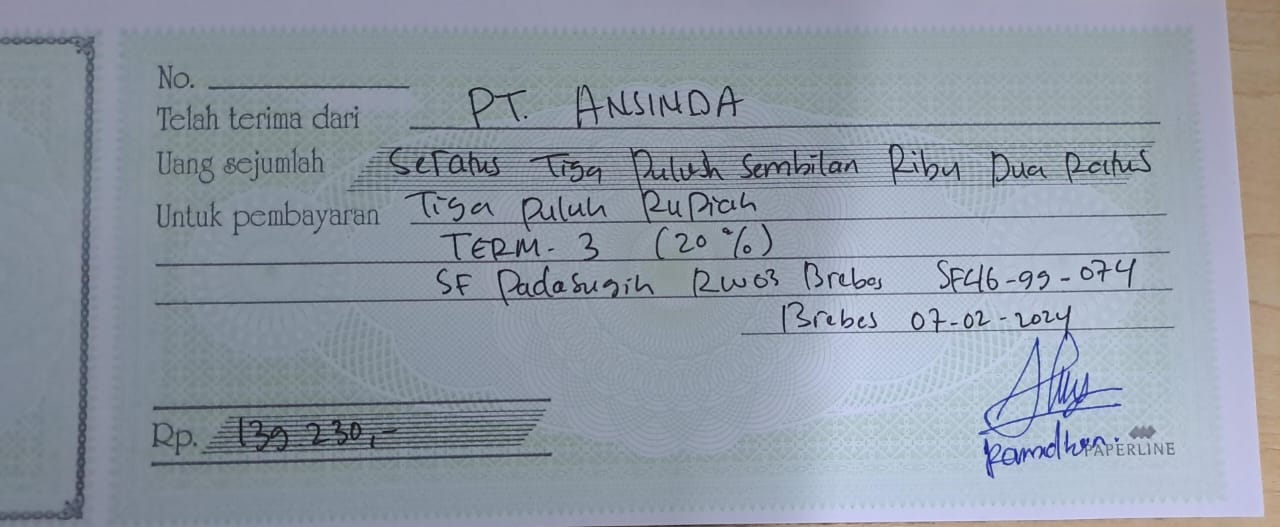 No.
Telah terima dari PT. ANSINDA
Uang sejumlah Seratus Tiga Puluh Sembilan Ribu Dua Ratus
Untuk pembayaran Tiga Puluh Rupiah
TERM-3 (20%)
SF Padasugih RW03 Brebes SF46-99-074
Brebes 07-02-2024
Rp. 139 230,-
Ramdhan.
PAPERLINE